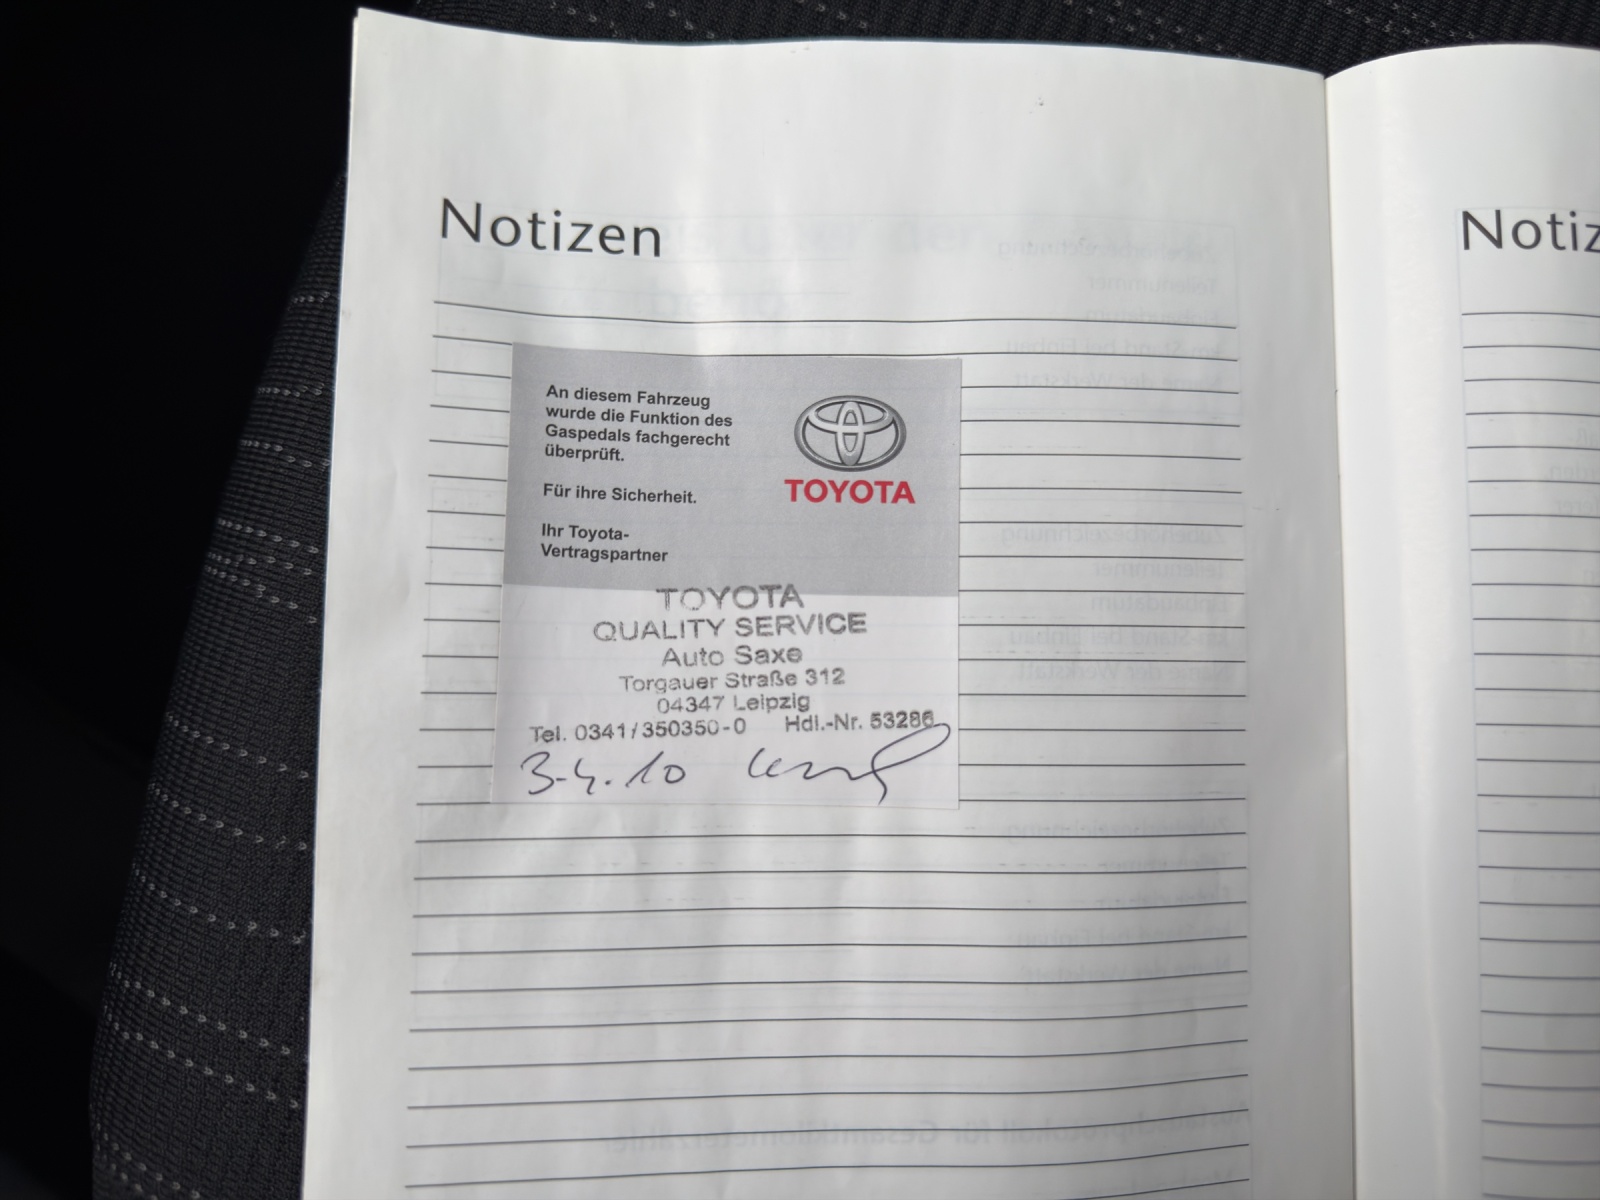 Notizen
An diesem Fahrzeug
wurde die Funktion des
Gaspedals fachgerecht
überprüft.
Für ihre Sicherheit.
Ihr Toyota-
Vertragspartner
TOYOTA
TOYOTA
QUALITY SERVICE
Auto Saxe
Torgauer Straße 312
04347 Leipzig
Tel. 0341/350350-0 Hdl.-Nr. 53286
3.4.10
Notiz